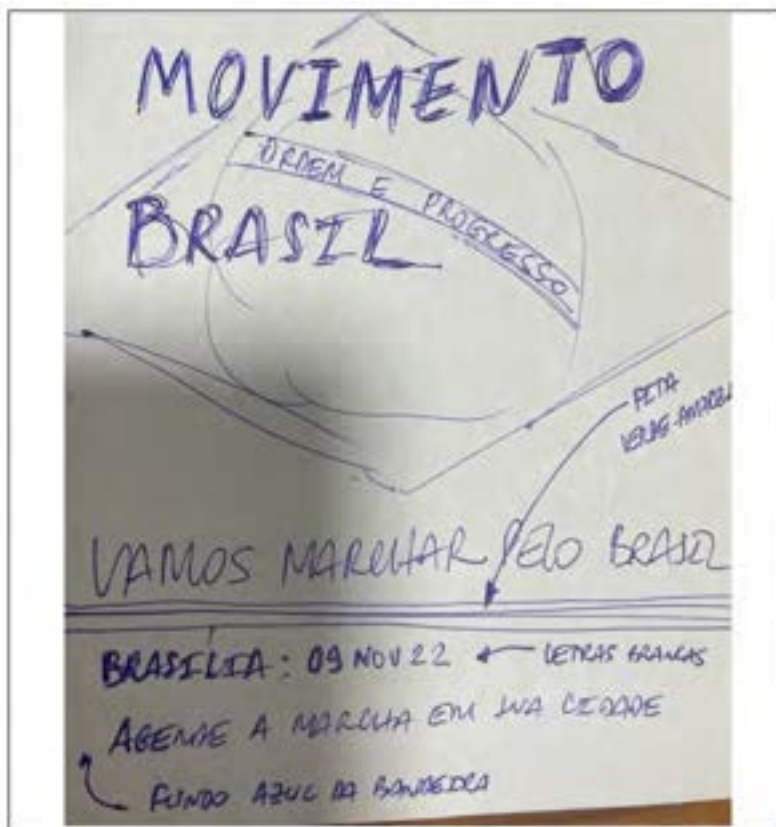 MOVIMENTO
ORDEM E PROGRESSO
BRASIL
FITA
VERDE-AMAREL
VAMOS MARCHAR PELO BRASIL
BRASÍLIA: 09 NOV 22 ← LETRAS BRANCAS
AGENDE A MARCHA EM SUA CIDADE
FUNDO AZUL DA BANDEIRA